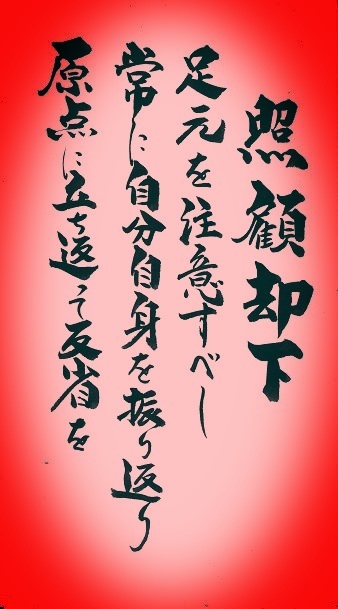 照顧却下
足元を注意すべし
常に自分自身を振り返り
原点に立ち返って反省を